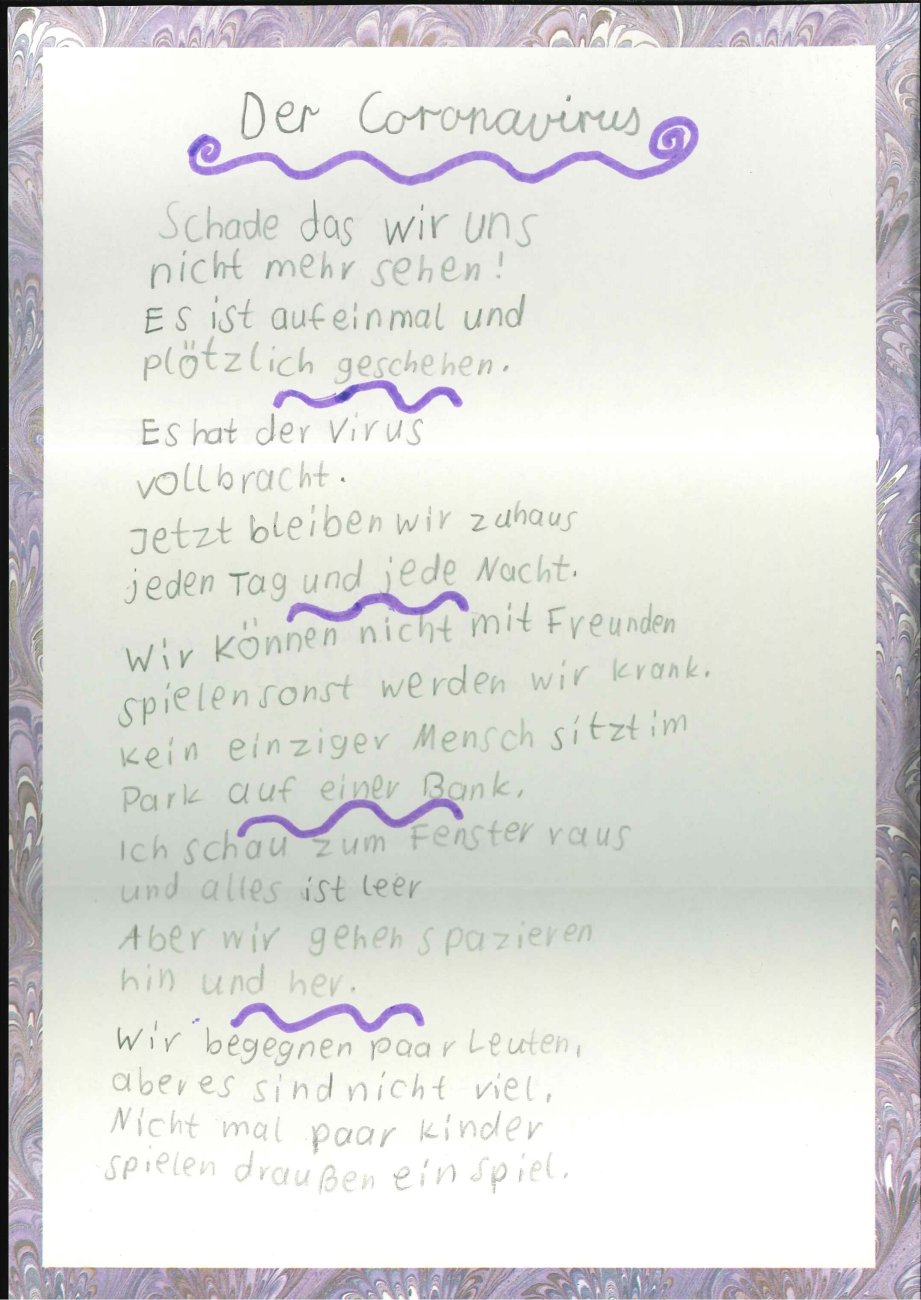 Der Coronavirus
Schade das wir uns
nicht mehr sehen!
Es ist aufeinmal und
plötzlich geschehen.
Es hat der Virus
vollbracht.
Jetzt bleiben wir zuhaus
jeden Tag und jede Nacht.
Wir können nicht mit Freunden
spielen sonst werden wir krank.
kein einziger Mensch sitzt im
Park auf einer Bank.
Ich schau zum Fenster raus
und alles ist leer
Aber wir gehen spazieren
hin und her.
Wir begegnen paar Leuten,
aber es sind nicht viel.
Nicht mal paar kinder
spielen draußen ein spiel.